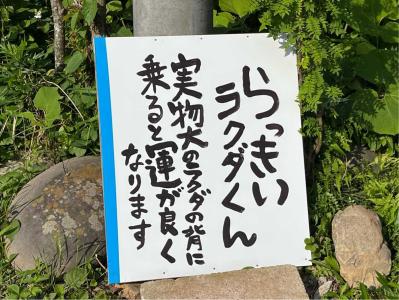 らっきい
ラクダくん
実物大のラクダの背に
乗ると運が良く
なります